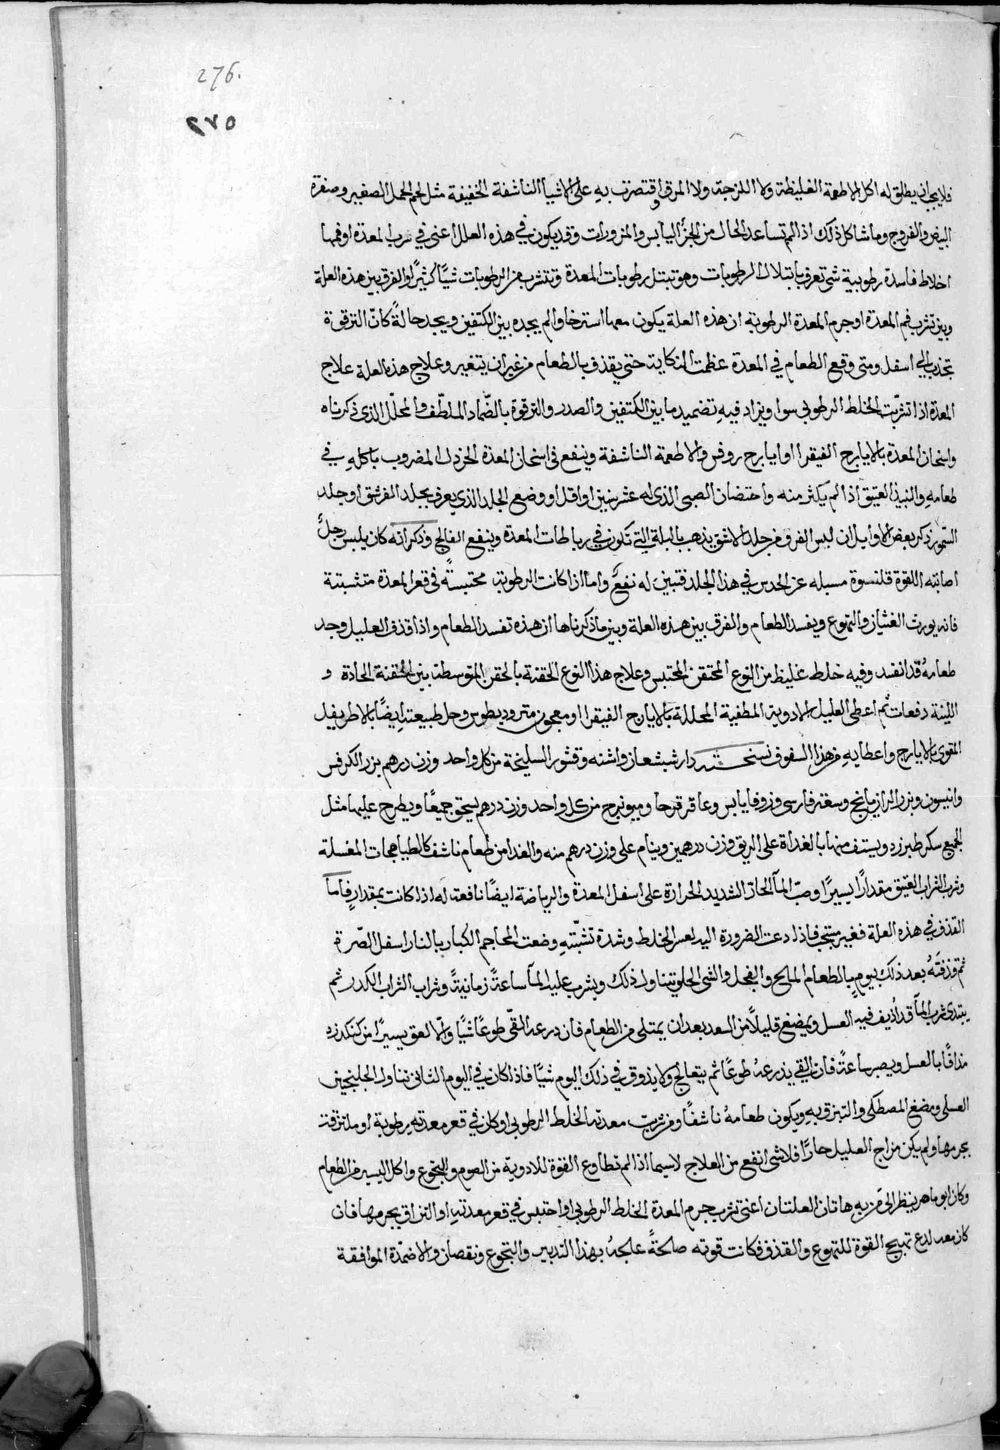 276.
٢٧٥
فلا يجب ان يطلق له اكل الاطعمة الغليظة ولا اللزجة ولا المرق اقتصرت به على الاشيا الناشفة الخفيفة مثل لحم الحمل الصغير وصفرة
البيض والفروج وما شاكل ذلك اذا لم تساعد الحال من الجزأ اليابس والمزورات وقد يكون في هذه العلل اعني في شرب المعدة او فمها
اخلاط فاسدة رطوبية شي تعرف بابتلال الرطوبات وهو تبتل رطوبات المعدة وتتشرب من الرطوبات شيًا كثيرًا والفرق بين هذه العلة
وبين تشرب فم المعدة او جرم المعدة الرطوبة ان هذه العلة يكون معها استرخا والم يجده بين الكتفين ويجد حالةً كانّ الترقوة
تجذب الي اسفل ومتى وقع الطعام في المعدة عظمت النكاية حتى يقذف بالطعام من غير ان يتغير وعلاج هذه العلة علاج
المعدة اذا تشرّبت الخلط الرطوبي سوا ويزاد فيه تضميد ما بين الكتفين والصدر والترقوة بالضّماد الملطّف والمحلّل الذي ذكرناه
واسخان المعدة بالايارج الفيقرا او ايارج روفس والاطعمة الناشفة وينفع في اسخان المعدة الخردل المضروب باكله في
طعامه والنبيذ العتيق اذا لم يكثر منه واحتضان الصبي الذي له عشر سنين او اقل او وضع الجلد الذي يعرف بجلد الفرشق او جلد
السّمور ذكر بعض الاوايل ان لبس الفرو من جلد الاشق يذهب بالبلة التي تكون في رباطات المعدة وينفع الفالج وذكر انه كان يلبس رجلٌ
اصابته اللقوة قلنسوة مسبله عن الحدس في هذا الجلد فتبين له نفعٌ واما اذا كانت الرطوبة محتبسةً في قعر المعدة متشبثة
فانه يورث الغثيان والتهوع ويفسد الطعام والفرق بين هذه العلة وبين ما ذكرناها ان هذه تفسد الطعام واذا قذف العليل وجد
طعامهُ قد انفسد وفيه خلط غليظ من النوع المحتقن المحتبس وعلاج هذا النوع الحقنة بالحقن المتوسطة بين الحقنة الحادة و
اللينة دفعات ثم اعطى العليل الادوية المطفية المحللة بالايارج الفيقرا او معجون مثروديطوس وحل طبيعته ايضًا بالاطريفل
المقوى بالايارج واعطايه من هذا السفوف نسخته دارشيشعان واشنه وقشور السليخة من كل واحد وزن درهم بزر الكرفس
وانيسون وبزر الرازيانج وسعتر فارسي وزوفا يابس وعاقرقرحا وبيونج من كل واحد وزن درهم يسحق جميعًا ويطرح عليها مثل
الجميع سكر طبرزد ويستف منها بالغداة على الريق وزن درهمين وينام على وزن درهم منه والغدا من طعام ناشف كالطباهجات المغسلة
وشرب الشراب العتيق مقدارًا يسيرًا وصبّ المآ الحار الشديد الحرارة على اسفل المعدة والرياضة ايضًا نافعة له اذا كانت بمقدار فاما
القذف في هذه العلة فغير مستحب فاذا دعت الضرورة اليه لعسر الخلط وشدة تشبّثه وضعت المحاجم الكبار بالنار اسفل الصرة
ثم قذفتهُ بعد ذلك بيوم بالطعام المالح والفجل والشي الحلو يتناول ذلك ويشرب عليه المآ ساعةً زمانيةً وشراب الشراب الكدر ثم
يبتدى بشرب المآ قد اديف فيه العسل ويمضغ قليلًا من السعد بعد ان يمتلى من الطعام فان ذرعه القي طوعًا شيًا والّا لعق يسيرًا من كنكرزد
مذافًا بالعسل ويصبر ساعةً فان القي يذرعهُ طوعًا ثم يتعالج ولا يذوق في ذلك اليوم شيًا فاذا كان في اليوم الثاني تناول الجلنجبين
العسلي ومضغ المصطكي والتبزق به ويكون طعامهُ ناشفًا ومن تشربت معدته الخلط الرطوبي او كان في قعر معدته رطوبة او ملتزقة
بجرمها ولم يكن مزاج العليل حارًا فلا شي انفع من العلاج لاسيما اذا لم تطاوع القوة للادوية من الصوم والتجوع واكل اليسير من الطعام
وكان ابو ماهر ينظر الى من به هاتان العلتان اعني تشرب جرم المعدة الخلط الرطوبي او احتبس في قعر معدته او التزاق بجرمها فان
كان معه لدع تهيج القوة للتهوع والقذف فكانت قوته صالحةً عالجهُ بهذا التدبير والتجوع ونقصان والاضمدة الموافقة